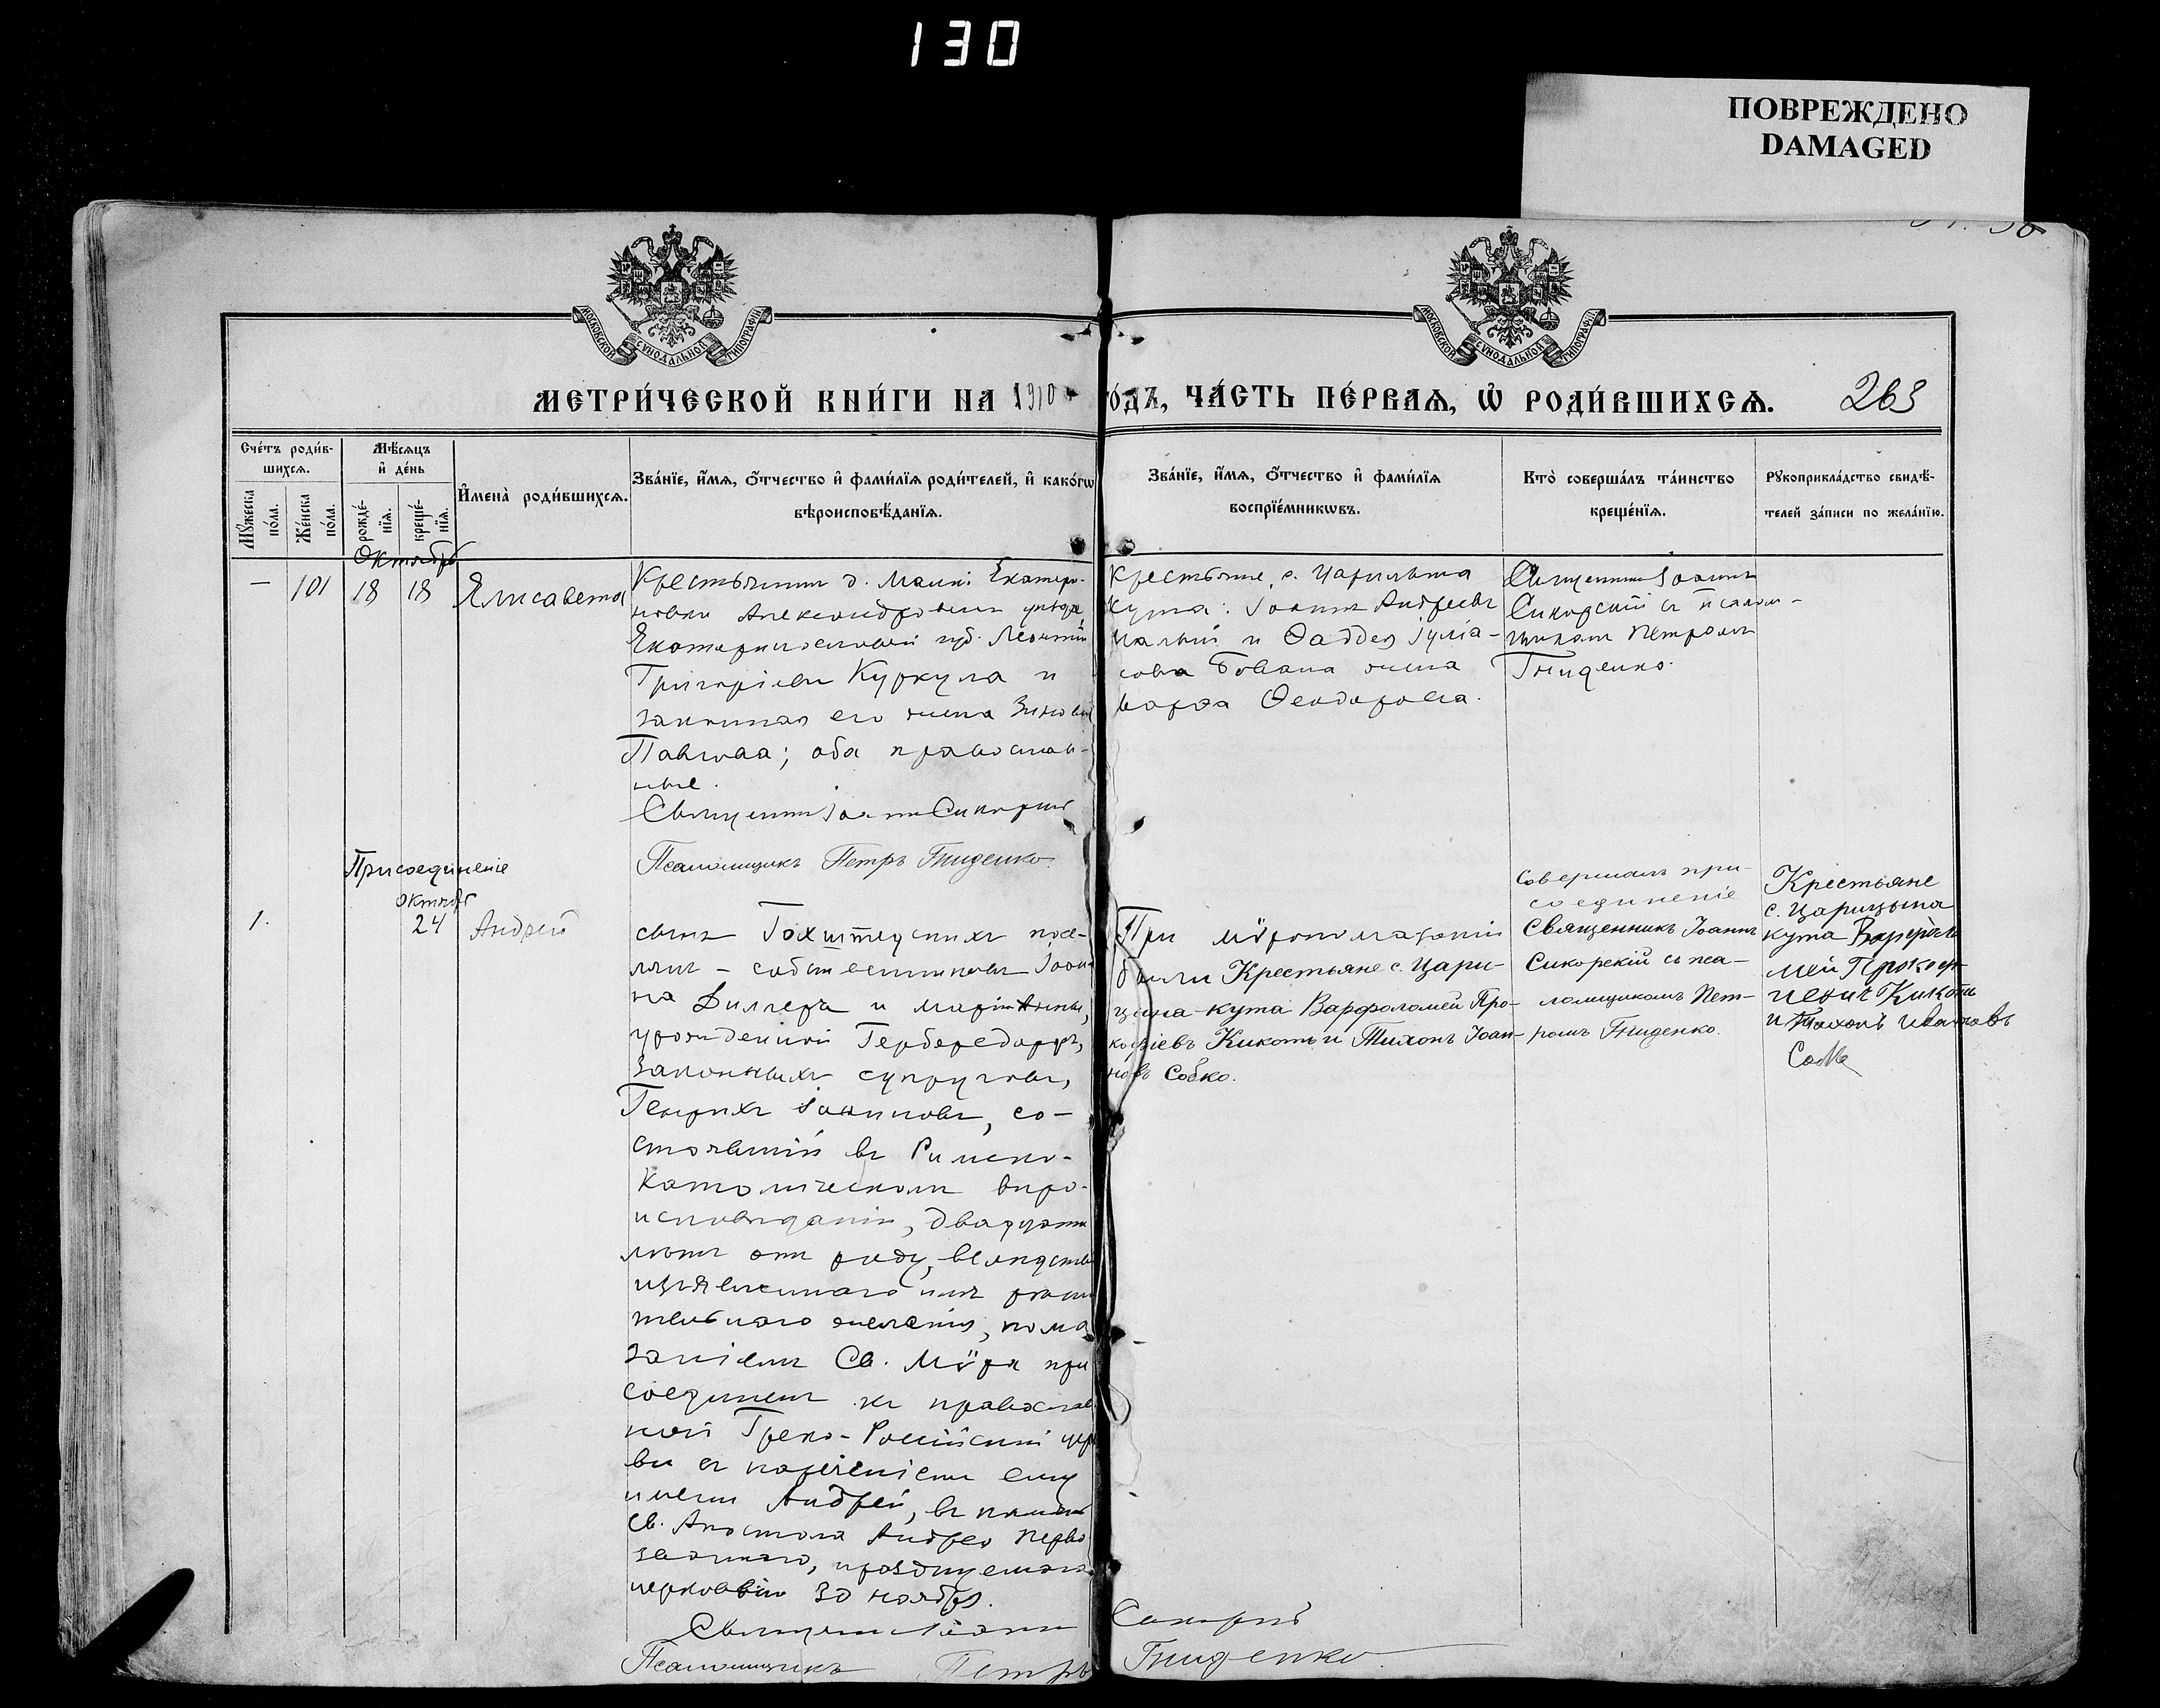 130
ПОВРЕЖДЕНО
DAMAGED
МОСКОВСКОЙ СУНОДАЛЬНОЙ ТИПОГРАФІИ
МОСКОВСКОЙ СУНОДАЛЬНОЙ ТИПОГРАФІИ
МЕТРИ́ЧЕСКОЙ КНИ́ГИ НА 1910
О́ДЪ, ЧА́СТЬ ПЕ́РВАѦ, Ѡ҆ РОДИ́ВШИХСѦ. 263
Сче́тъ роди́в-
шихсѧ.
Мꙋ́жеска по́ла.
Же́нска по́ла.
Мѣ́сѧцъ
и҆ де́нь
рожде́-
нїѧ.
креще́-
нїѧ.
И҆мена̀ роди́вшихсѧ.
Зва́нїе, и҆́мѧ, ѻ҆́тчество и҆ фами́лїѧ роди́телей, и҆ како́гѡ
вѣроисповѣ́данїѧ.
Зва́нїе, и҆́мѧ, ѻ҆́тчество и҆ фами́лїѧ
воспрїе́мникѡвъ.
Кто̀ соверша́лъ та́инство
креще́нїѧ.
Рꙋкоприкла́дство свидѣ́-
телей за́писи по жела́нїю.
Октябрь
— 101 18 18 Елисавета
Крестьянинъ д. Малой Екатери-
новки Александровскаго уѣзда,
Екатеринославской губ. Леонтій
Григоріевъ Куркула и
законная его жена Зиновія
Павлова; оба православ-
ные.
Священникъ Іоаннъ Сикорскій
Псаломщикъ Петръ Гниденко.
Крестьяне, с. Царицына
Кута: Іоаннъ Андреевъ
и Ѳаддея Іуліа-
нова жена
Ѳеодорова.
Священникъ Іоаннъ
Сикорскій съ псалом-
щикомъ Петромъ
Гниденко.
Присоединеніе
октябрь
1. 24 Андрей
сынъ посе-
лянъ – собственниковъ Іоан-
на Диллера и Маріанны,
урожденной
законныхъ супруговъ,
Генрихъ Іоанновъ, со-
стоявшій въ Римско-
Католическомъ вѣро-
исповѣданіи, двадцати
лѣтъ отъ роду, вслѣдствіе
изъявленнаго имъ рѣши
тельнаго желанія, пома
заніемъ Св. Мѵра при
соединенъ къ православ
ной Греко-Россійской церк
ви съ нареченіемъ ему
имени Андрей, въ память
св. Апостола Андрея Перво
званнаго, празднуемаго
церковію 30 ноября.
Священникъ Іоаннъ Сикорскій
Псаломщикъ Петръ Гниденко
При мѵропомазаніи
были Крестьяне с. Цари-
цына-кута Варфоломей Про-
кофіевъ Кикоть и Тихонъ Іоан-
новъ Собко.
Совершалъ при-
соединеніе
Священникъ Іоаннъ
Сикорскій съ пса-
ломщикомъ Пет-
ромъ Гниденко.
Крестьяне
с. Царицына
кута Варфоло
мей Прокоф
Кикоть
и Тихонъ Ивановъ